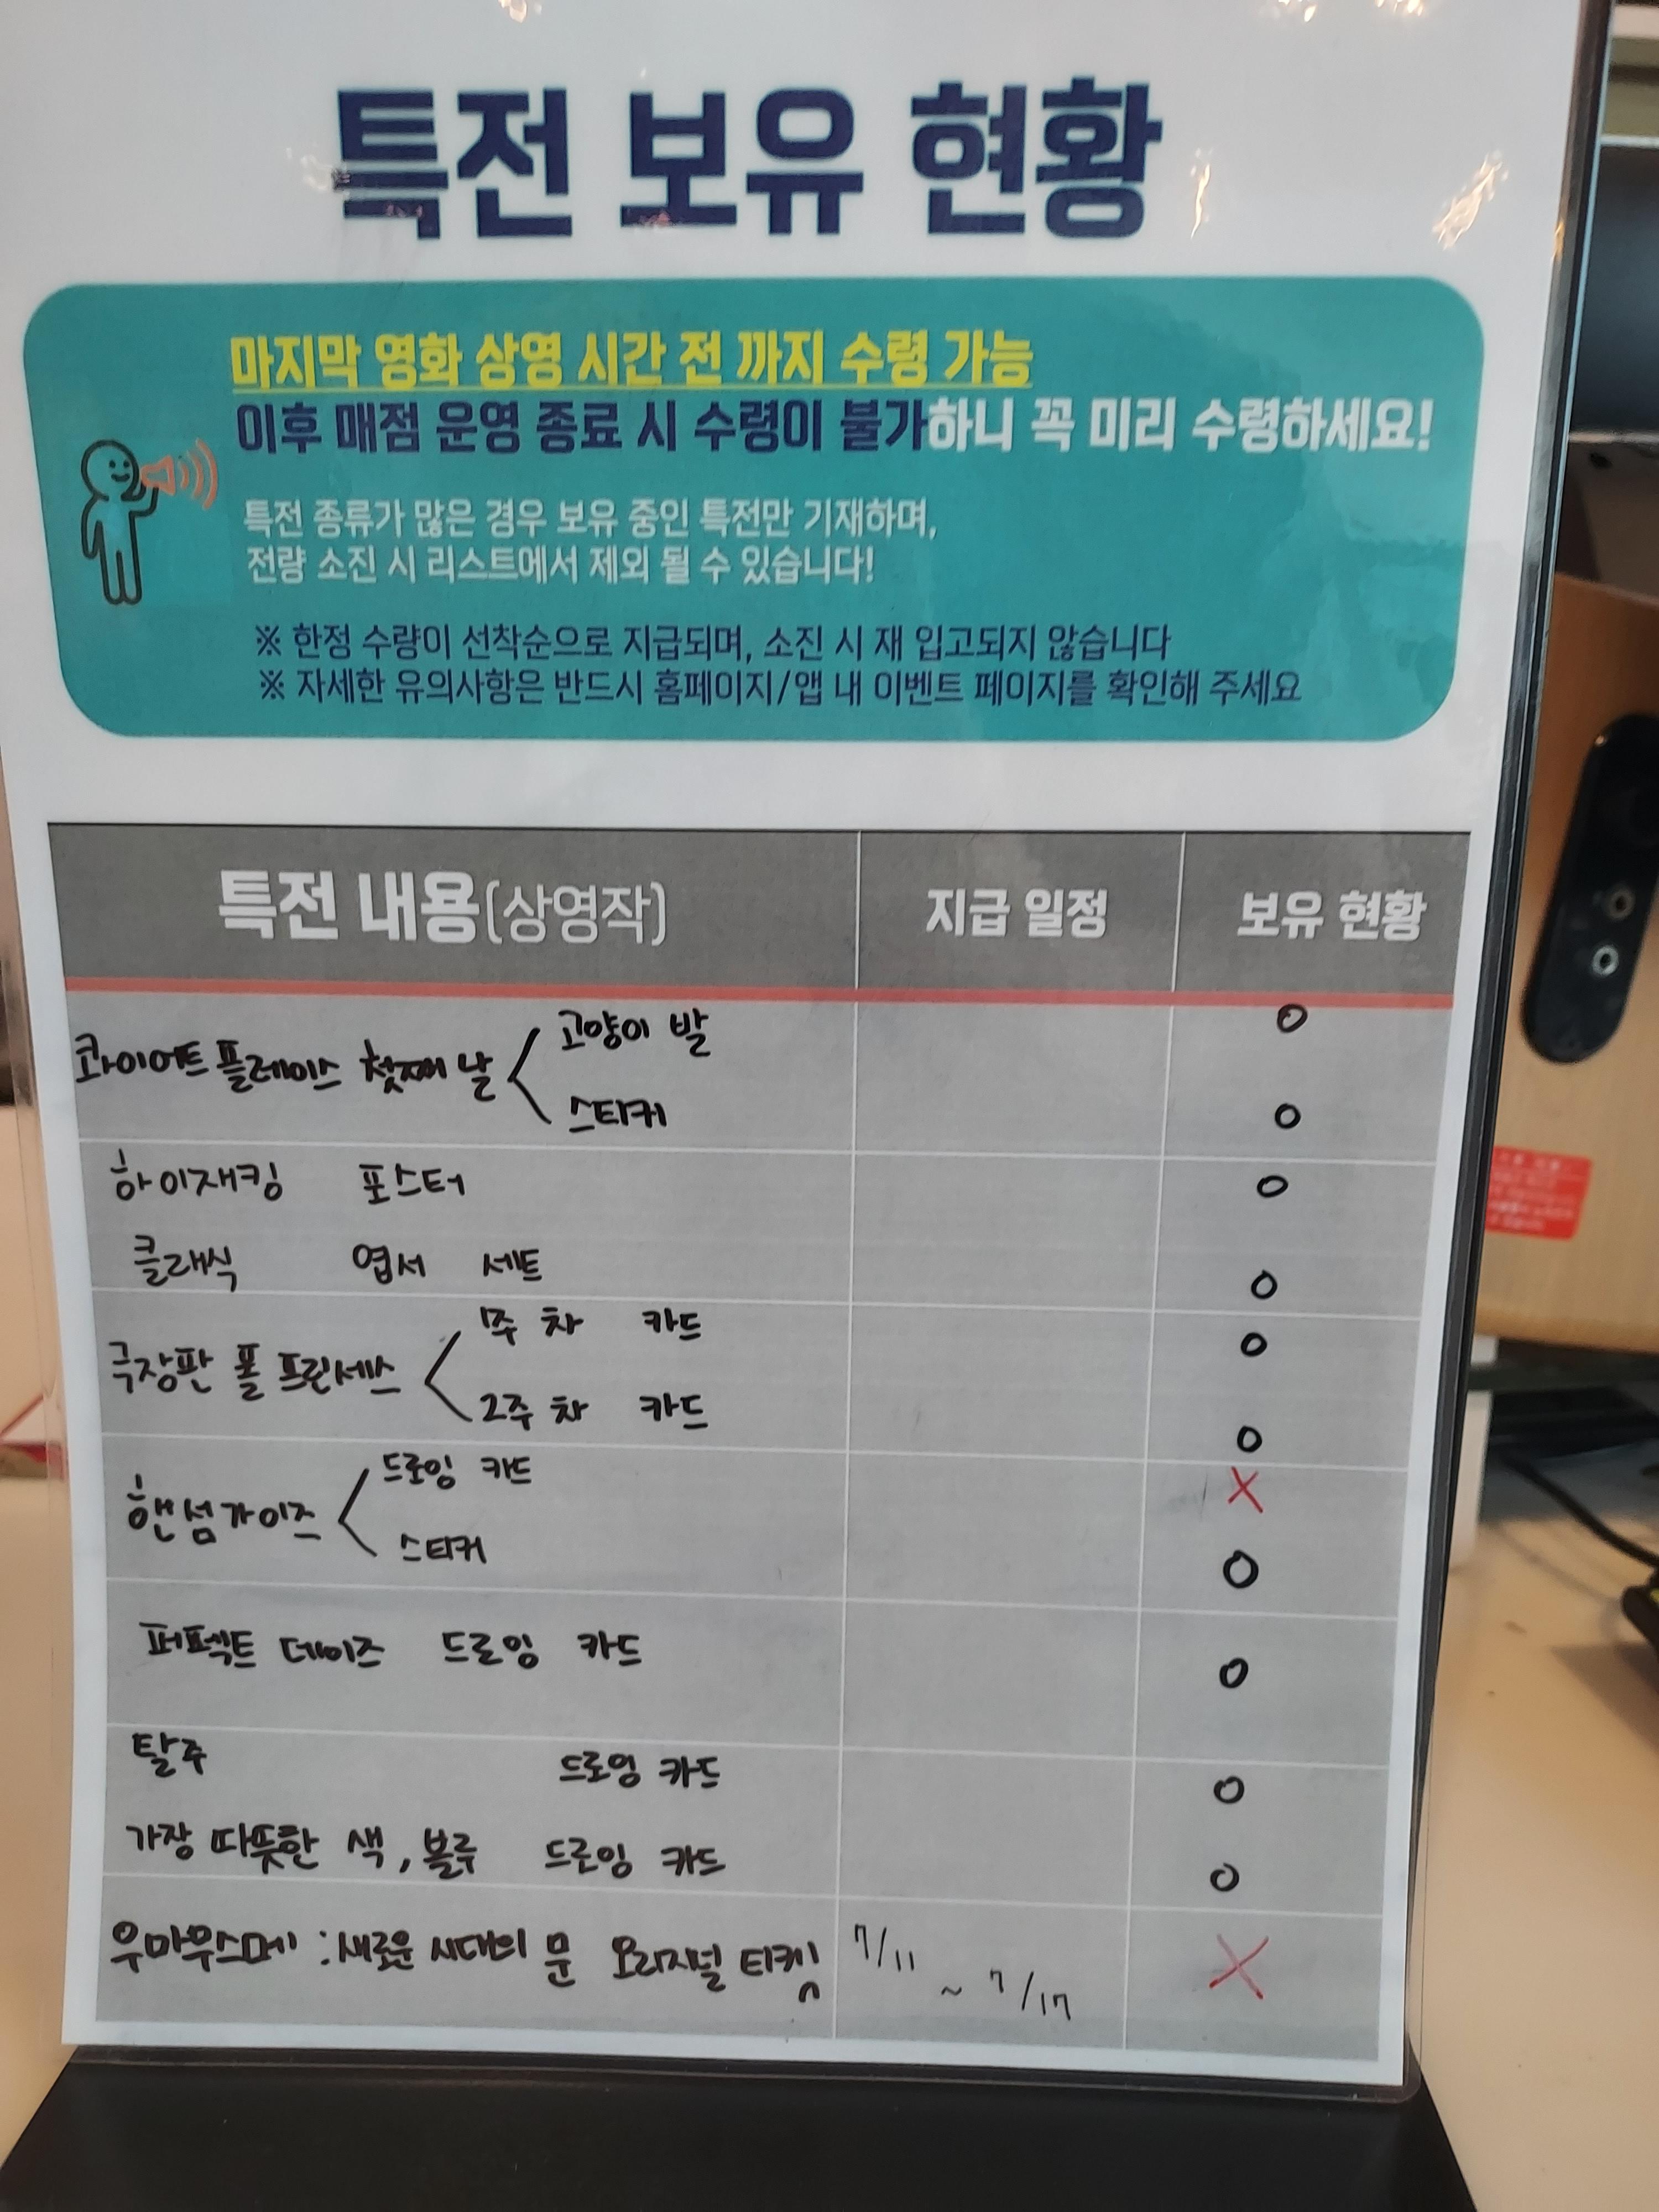 특전 보유 현황
마지막 영화 상영 시간 전 까지 수령 가능
이후 매점 운영 종료 시 수령이 불가하니 꼭 미리 수령하세요!
특전 종류가 많은 경우 보유 중인 특전만 기재하며,
전량 소진 시 리스트에서 제외 될 수 있습니다!
※ 한정 수량이 선착순으로 지급되며, 소진 시 재 입고되지 않습니다
※ 자세한 유의사항은 반드시 홈페이지/앱 내 이벤트 페이지를 확인해 주세요
특전 내용(상영작) 지급 일정 보유 현황
콰이어트 플레이스 첫째 날 고양이 발 O
스티커 O
하이재킹 포스터 O
클래식 엽서 세트 O
극장판 폴 프린세스 1주 차 카드 O
2주 차 카드 O
핸섬가이즈 드로잉 카드 X
스티커 O
퍼펙트 데이즈 드로잉 카드 O
탈주 드로잉 카드 O
가장 따뜻한 색, 블루 드로잉 카드 O
우마무스메 : 새로운 시대의 문 오리지널 티켓 7/11 ~ 7/17 X